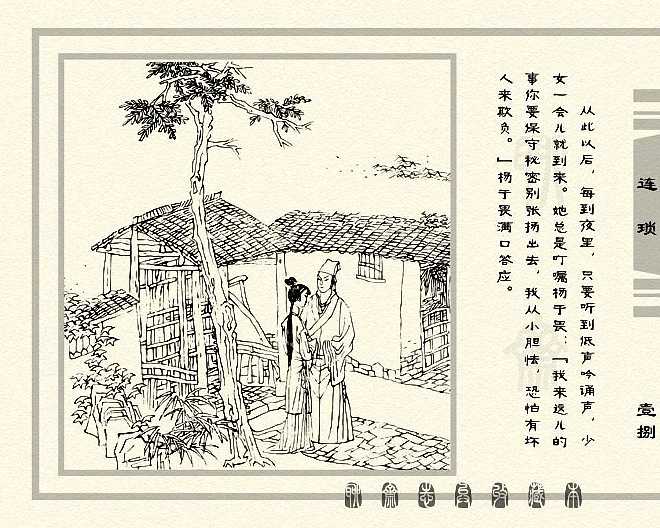 从此以后，每到夜里，只要听到低声吟诵声，少
女一会儿就到来。她总是叮嘱杨于畏：「我来这儿的
事你要保守秘密别张扬出去，我从小胆怯，恐怕有坏
人来欺负。」杨于畏满口答应。
连琐
壹捌
聊斋志异收藏本